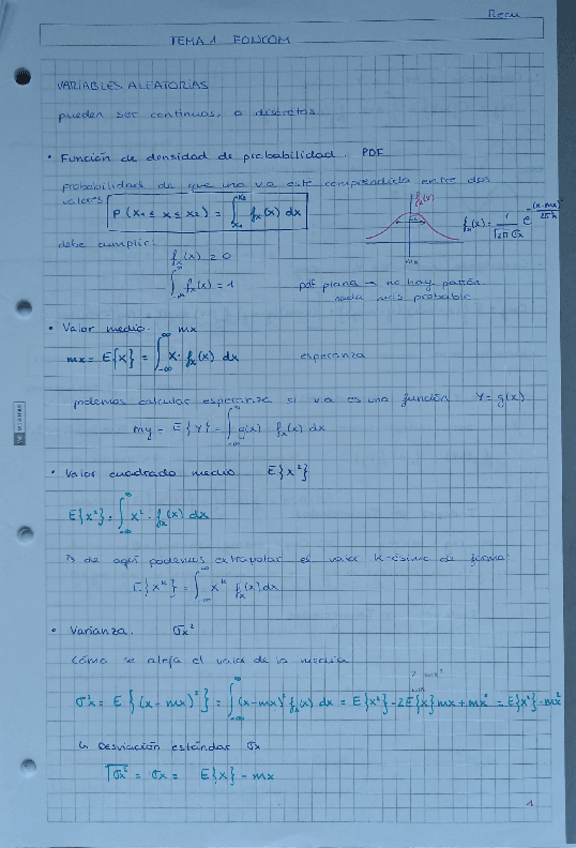 Recu
TEMA 1 FONCOM
VARIABLES ALEATORIAS
pueden ser continuas, o discretas
• Función de densidad de probabilidad. PDF
probabilidad de que una va esté comprendida entre dos
valores P(x₁ ≤ x ≤ x₂) = ∫ₓ₁^x₂ fₓ(x) dx
fₓ(x)
mx
fₓ(x) = 1/(√2π σx) e
debe cumplir:
fₓ(x) ≥ 0
∫₋∞^∞ fₓ(x) = 1
pdf plana → no hay patrón
nada más probable
• Valor medio. mx
mx = E{x} = ∫₋∞^∞ x · fₓ(x) dx esperanza
podemos calcular esperanza si va es una función Y = g(x)
my = E{Y} = ∫₋∞^∞ g(x) fₓ(x) dx
MIQUELRIUS
• Valor cuadrado medio E{x²}
E{x²} = ∫₋∞^∞ x² · fₓ(x) dx
↳ de aquí podemos extrapolar el valor k-ésimo de forma:
E{xᵏ} = ∫₋∞^∞ xᵏ fₓ(x) dx
• Varianza. σx²
Cómo se aleja el valor de la media
2 mx²
σx² = E{(x-mx)²} = ∫₋∞^∞ (x-mx)² fₓ(x) dx = E{x²} - 2E{x}mx + mx² = E{x²} - mx²
↳ Desviación estándar σx
√σx² = σx = E{x} - mx
1